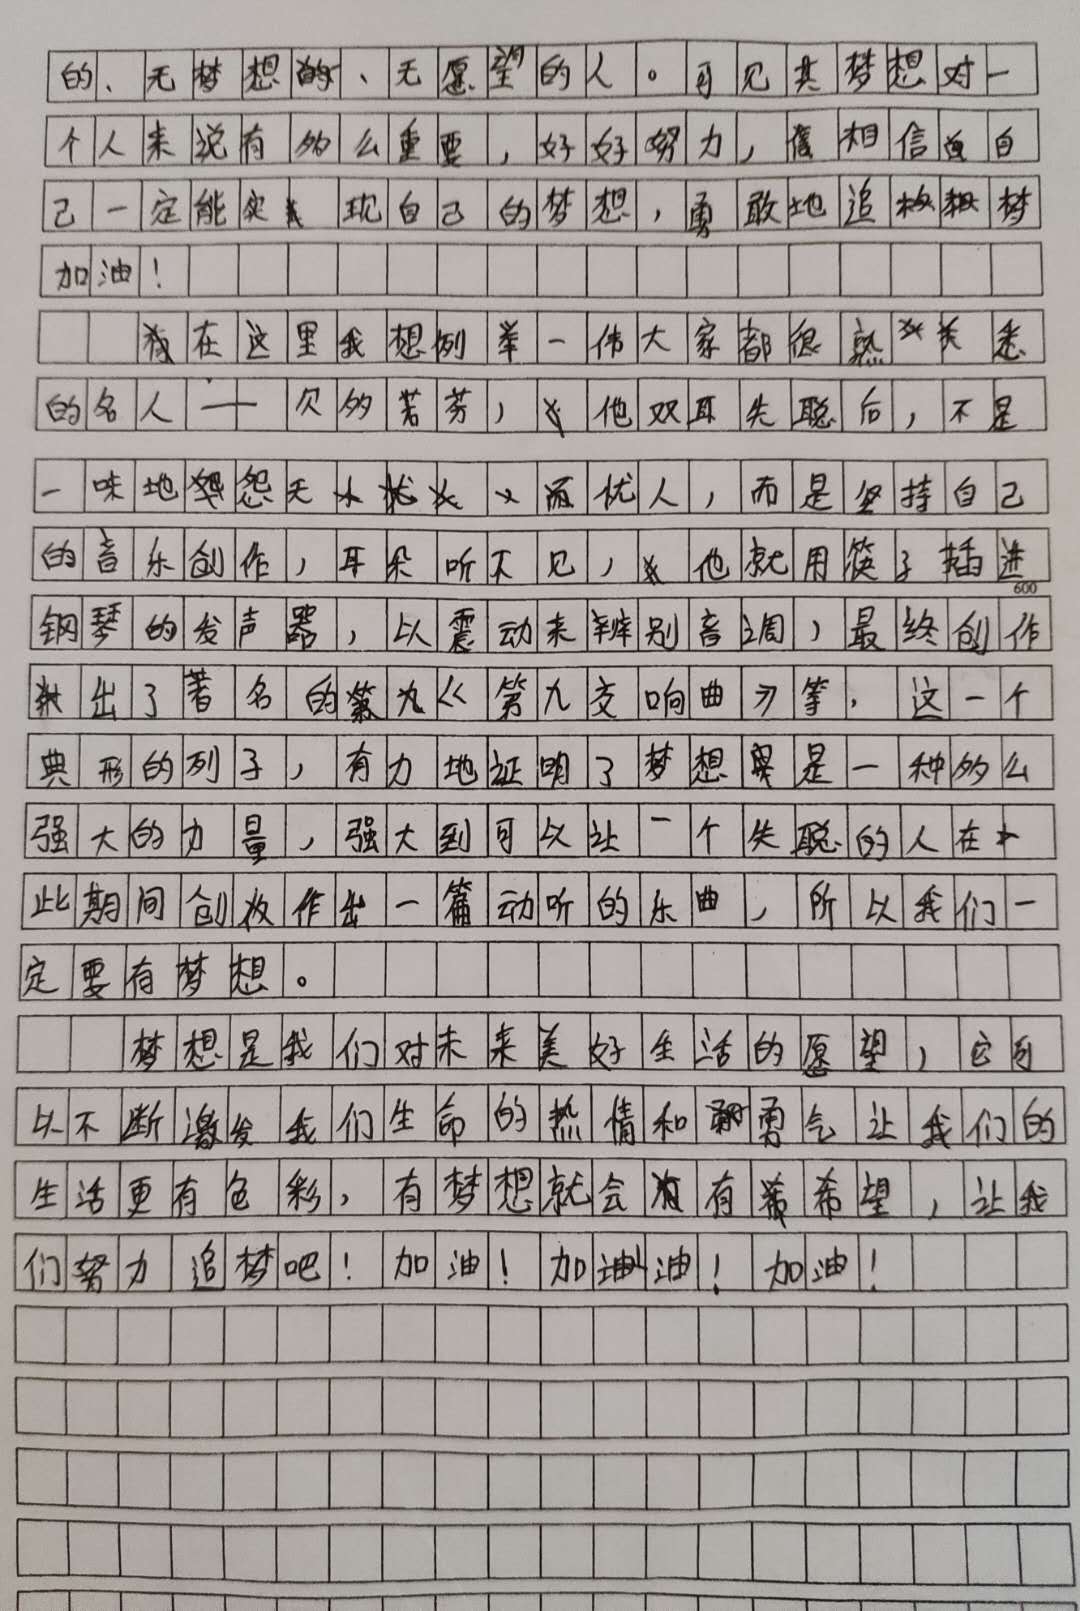 的、无梦想、无愿望的人。可见其梦想对一
个人来说有多么重要，好好努力，相信自
己一定能实现自己的梦想，勇敢地追梦
加油！
在这里我想例举一伟大家都很熟悉
的名人——贝多芬，他双耳失聪后，不是
一味地怨天而忧人，而是坚持自己
的音乐创作，耳朵听不见，他就用筷子插进
600
钢琴的发声器，以震动来辨别音调，最终创作
出了著名的《第九交响曲》等，这一个
典形的列子，有力地证明了梦想是一种多么
强大的力量，强大到可以让一个失聪的人在
此期间创作出一篇动听的乐曲，所以我们一
定要有梦想。
梦想是我们对未来美好生活的愿望，它可
以不断激发我们生命的热情和勇气让我们的
生活更有色彩，有梦想就会有希望，让我
们努力追梦吧！加油！加油！加油！